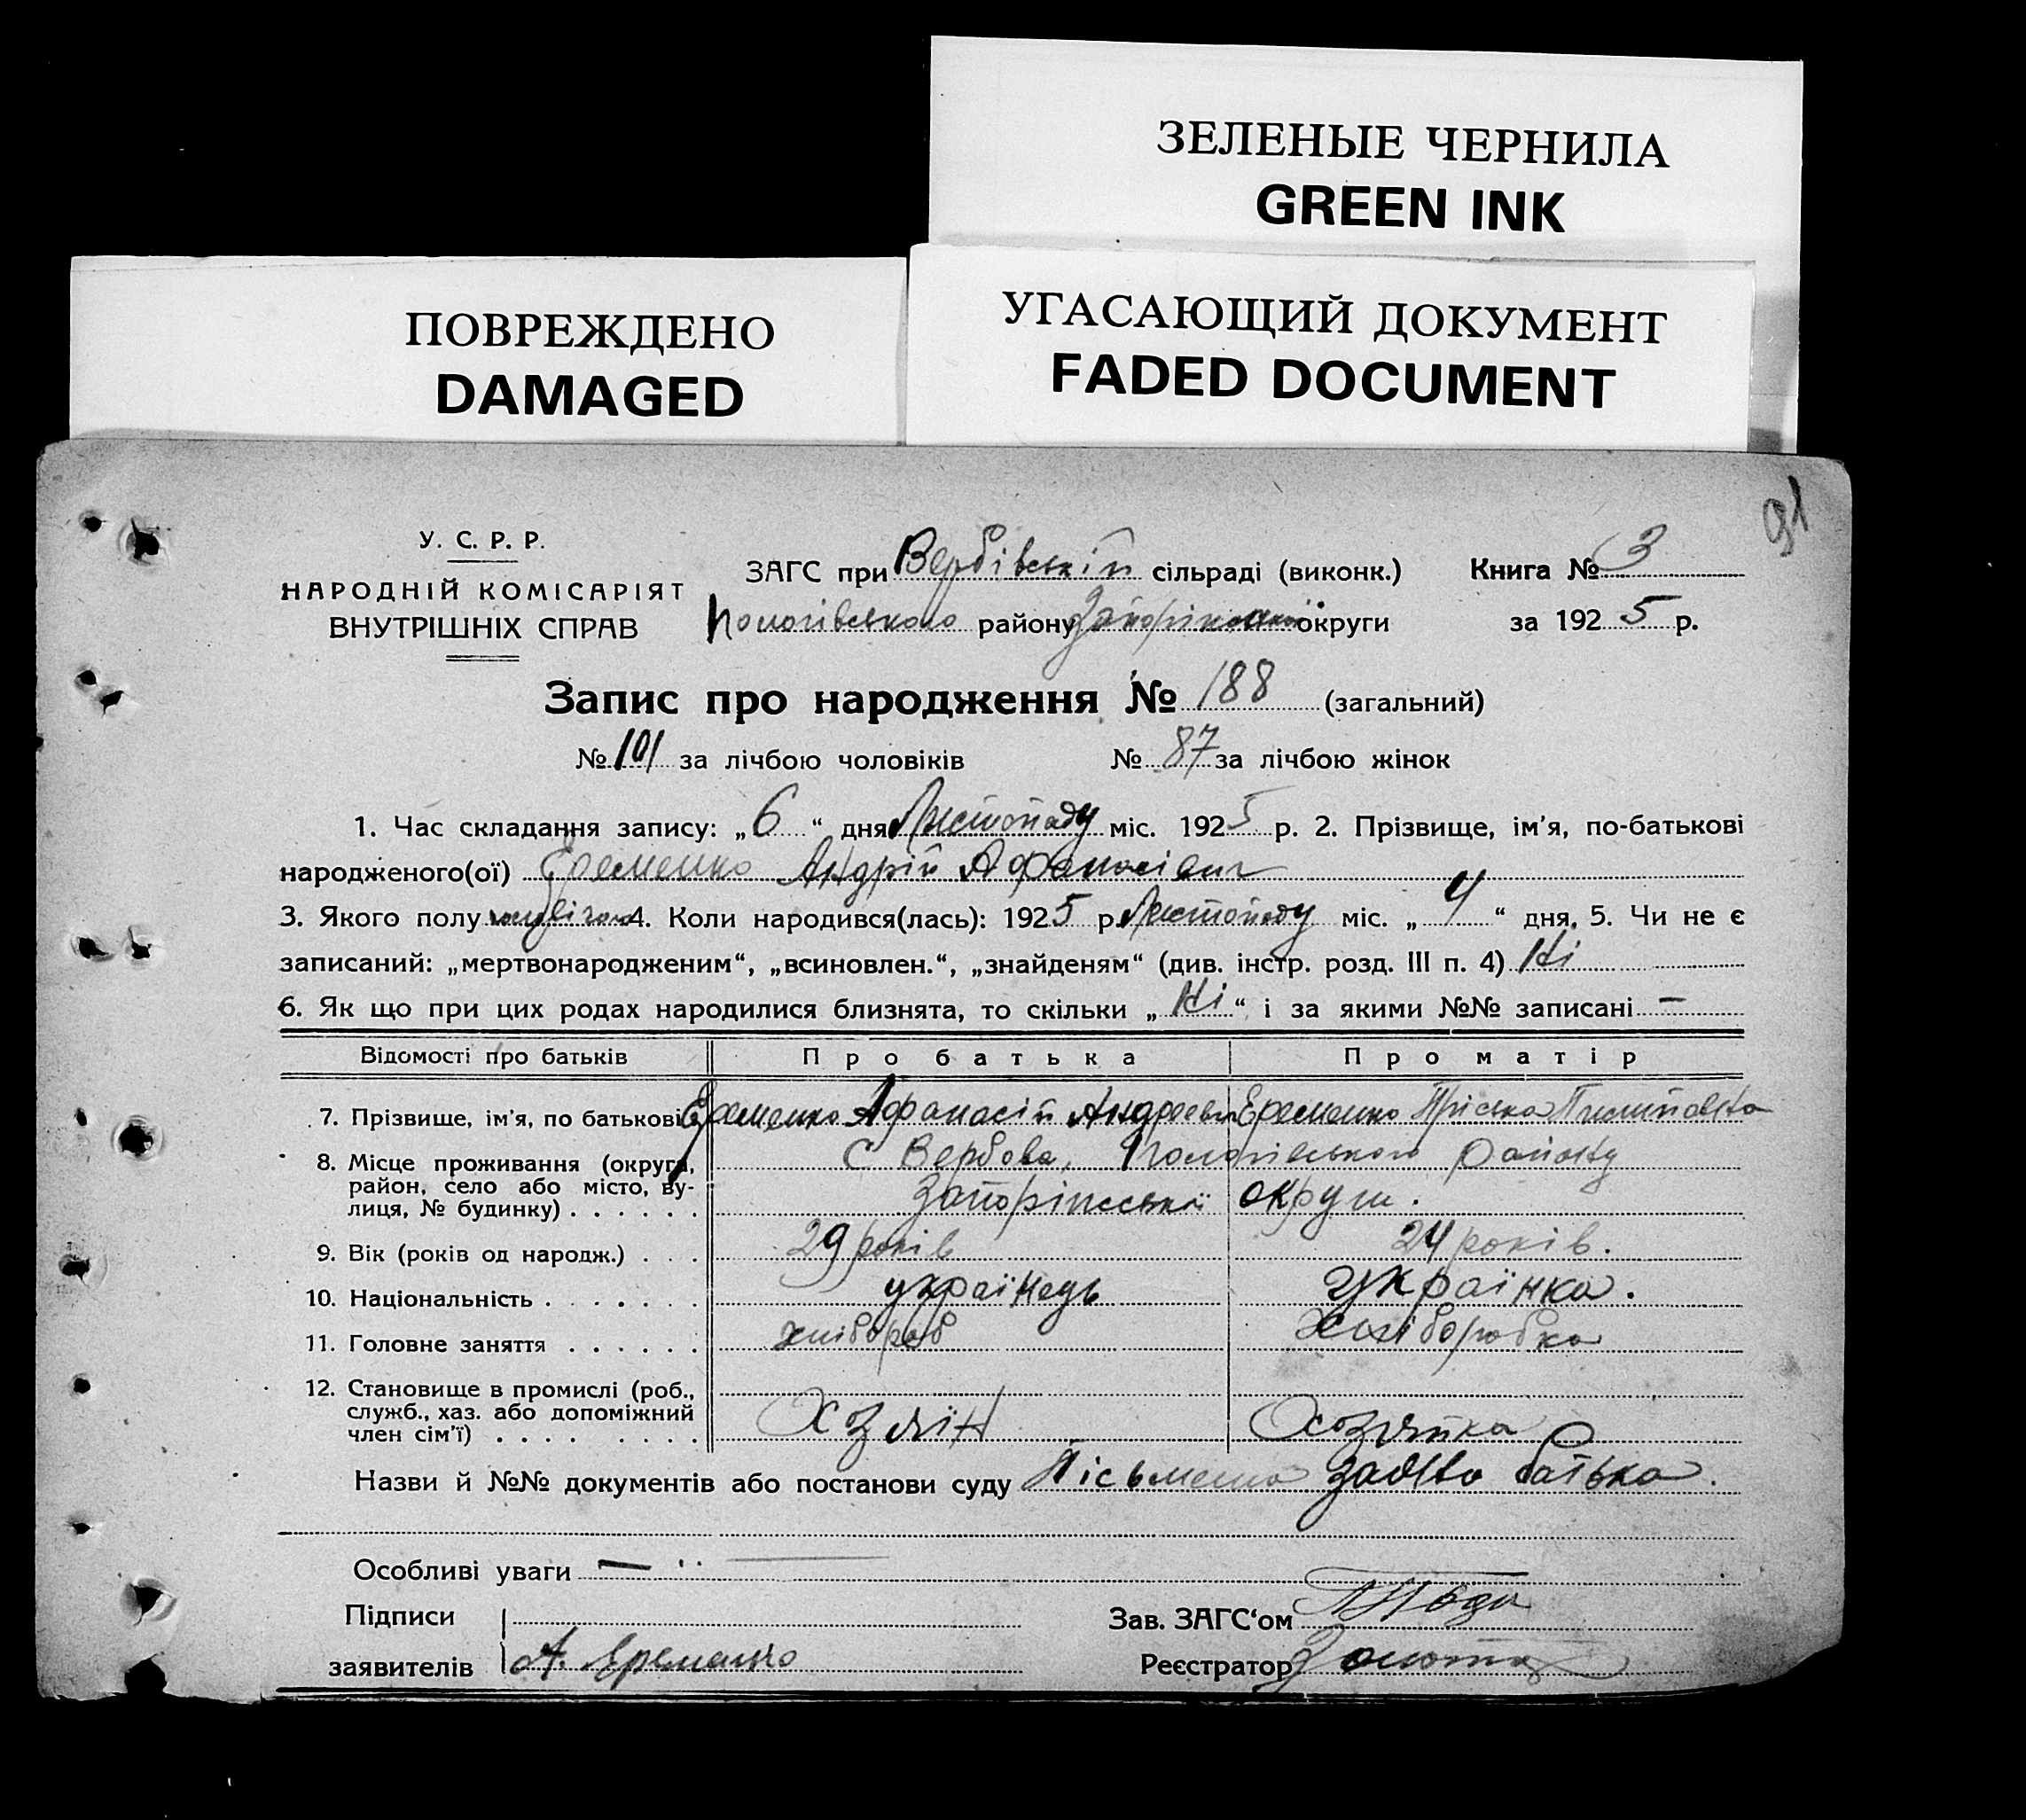 ЗЕЛЕНЫЕ ЧЕРНИЛА
GREEN INK
ПОВРЕЖДЕНО
DAMAGED
УГАСАЮЩИЙ ДОКУМЕНТ
FADED DOCUMENT
91
У. С. Р. Р.
НАРОДНІЙ КОМІСАРІЯТ
ВНУТРІШНІХ СПРАВ
ЗАГС при Вербівській сільраді (виконк.) Книга № 3
Пологівського району Запоріжської округи за 1925 р.
Запис про народження № 188 (загальний)
№ 101 за лічбою чоловіків № 87 за лічбою жінок
1. Час складання запису: „6“ дня Листопаду міс. 1925 р. 2. Прізвище, ім'я, по-батькові
народженого(ої) Єременко Андрій Афанасієвич
3. Якого полу 4. Коли народився(лась): 1925 р. Листопаду міс. „4“ дня, 5. Чи не є
записаний: „мертвонародженим“, „всиновлен.“, „знайденям“ (див. інстр. розд. III п. 4) Ні
6. Як що при цих родах народилися близнята, то скільки „Ні“ і за якими №№ записані —
Відомості про батьків Про батька Про матір
7. Прізвище, ім'я, по батькові Єременко Афанасій Андреевич Єременко Пріська
8. Місце проживання (округа, район, село або місто, вулиця, № будинку) . . . . . . С Вербова, Пологівського району
Запоріжської округи.
9. Вік (років од народж.) . . . 29 років 24 років.
10. Національність . . . . . . . українець українка.
11. Головне заняття . . . . . . хлібороб Хліборобка
12. Становище в промислі (роб., служб., хаз. або допоміжний член сім'ї) . . . . . . . . Хозяїн Хозяйка
Назви й №№ документів або постанови суду Пісьмена заява батька.
Особливі уваги —
Підписи Зав. ЗАГС‘ом
заявителів А. Єременко Реєстратор